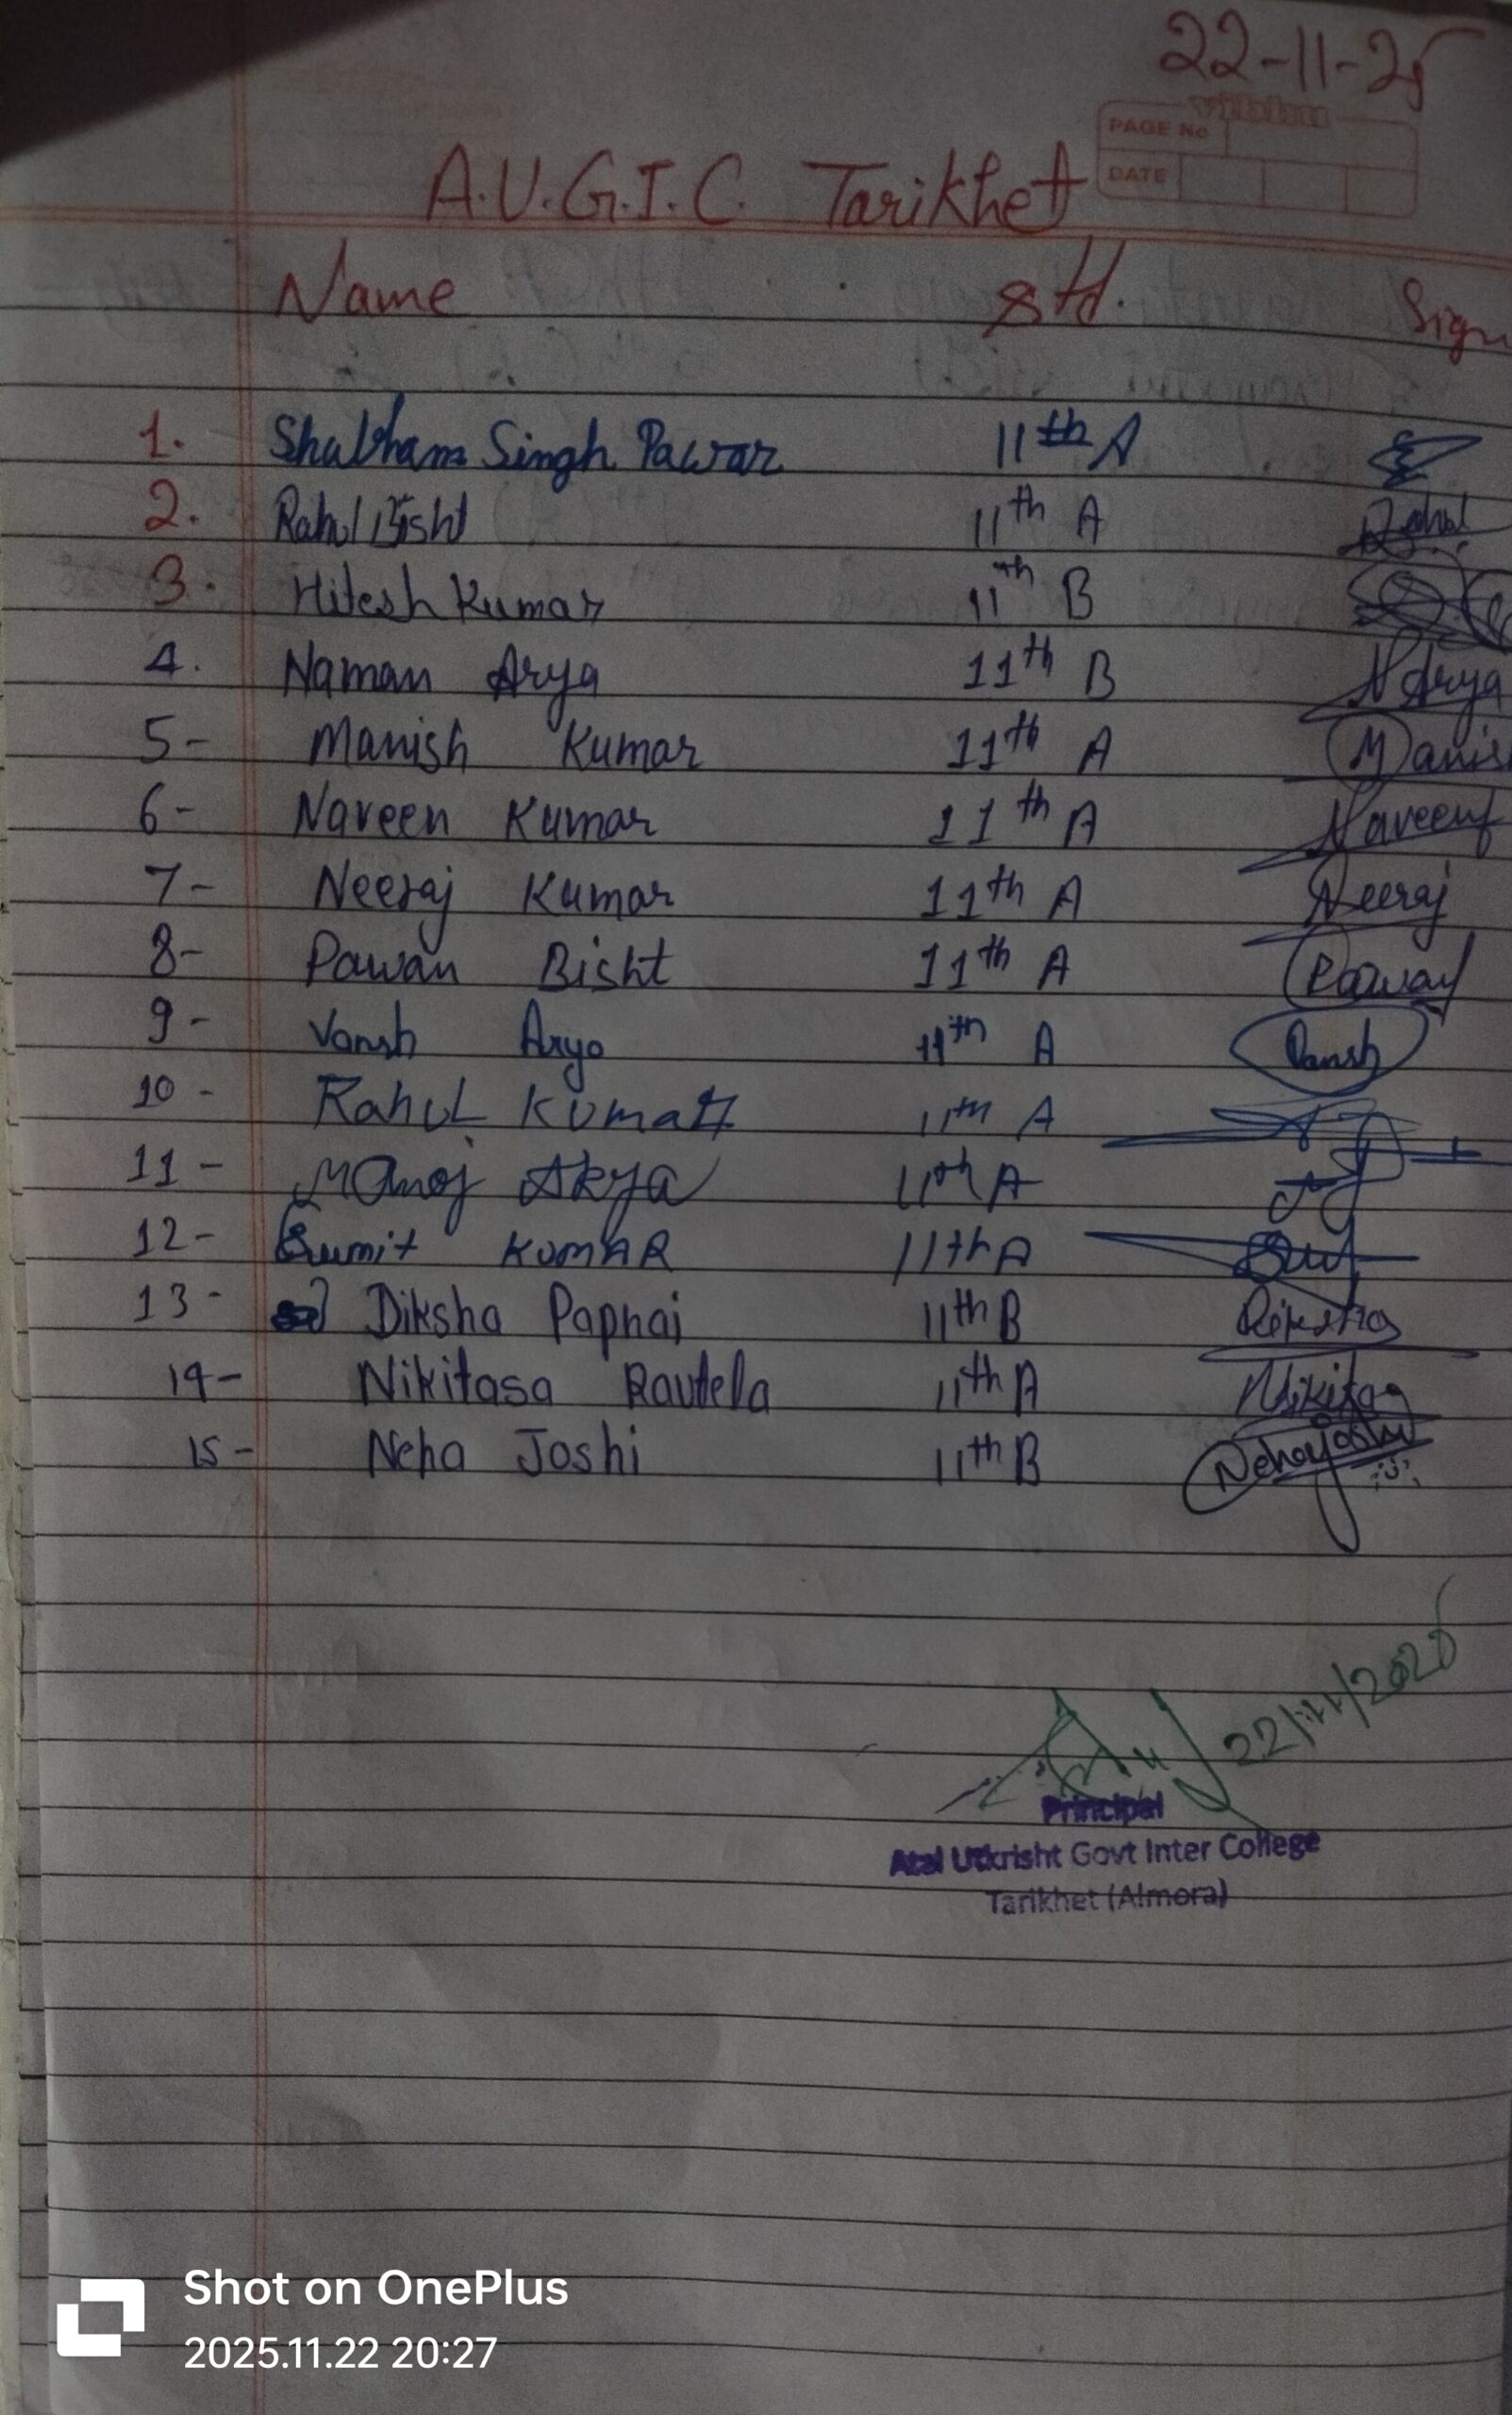 22-11-25
vibhu
PAGE No
DATE
A.U.G.I.C. Tarikhet
Name Std. Sign
1. Shubham Singh Pawar 11th A
2. Rahul Bisht 11th A Rahul
3. Hitesh Kumar 11th B
4. Naman Arya 11th B N Arya
5- Manish Kumar 11th A Manish
6- Naveen Kumar 11th A Naveen
7- Neeraj Kumar 11th A Neeraj
8- Pawan Bisht 11th A Pawan
9- Vansh Arya 11th A Vansh
10- Rahul Kumar 11th A
11- Manoj Arya 11th A
12- Sumit KumAR 11th A
13- Diksha Papnai 11th B Diksha
14- Nikitasa Rautela 11th A Nikita
15- Neha Joshi 11th B Neha Joshi
22/11/2025
Principal
Atal Utkrisht Govt Inter College
Tarikhet (Almora)
Shot on OnePlus
2025.11.22 20:27